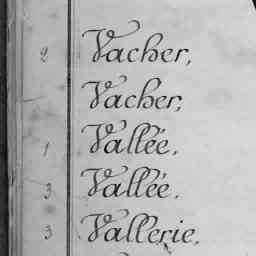 2 Vacher,
Vacher,
1 Vallée.
3 Vallée.
3 Vallerie,